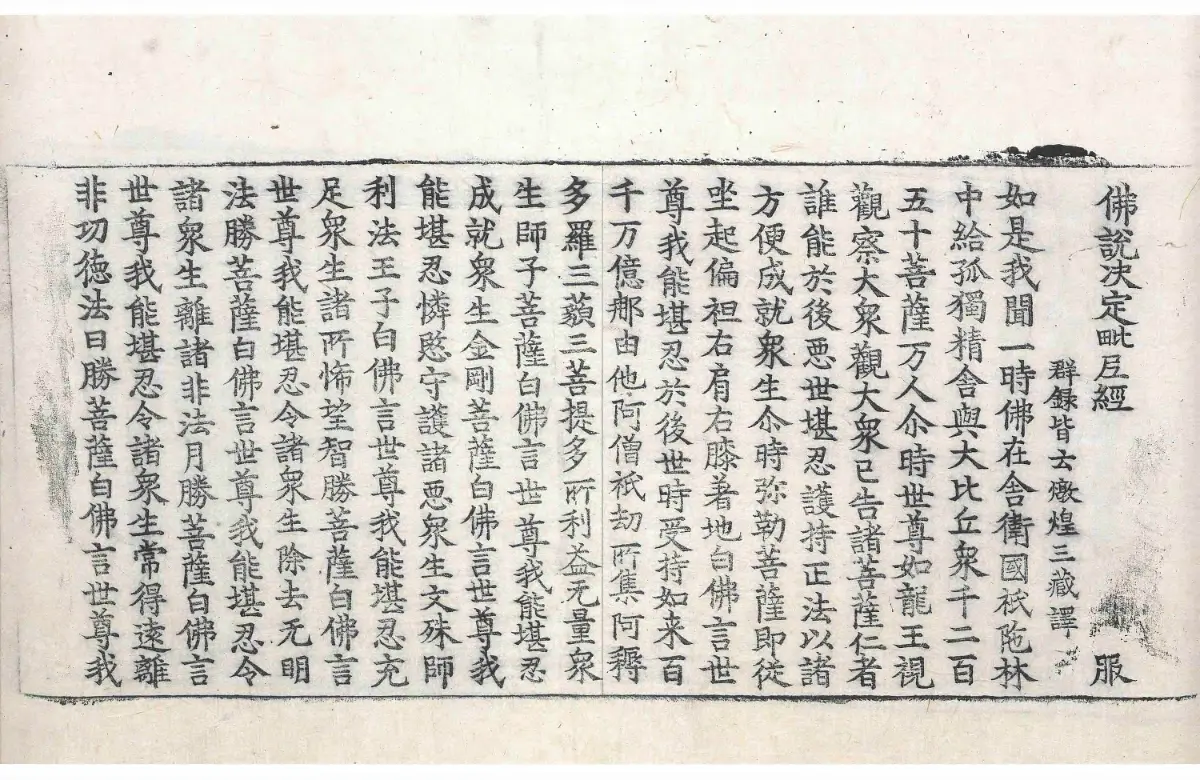 佛說决定毗尼經 服
群録皆云燉煌三藏譯
如是我聞一時佛在舍衛國祇陁林
中給孤獨精舍與大比丘衆千二百
五十菩薩万人尒時世尊如龍王視
觀察大衆觀大衆已告諸菩薩仁者
誰能於後悪世堪忍護持正法以諸
方便成就衆生尒時弥勒菩薩即從
坐起偏袒右肩右膝著地白佛言世
尊我能堪忍於後世時受持如来百
千万億那由他阿僧祇劫所集阿耨
多羅三藐三菩提多所利益无量衆
生師子菩薩白佛言世尊我能堪忍
成就衆生金剛菩薩白佛言世尊我
能堪忍憐愍守護諸悪衆生文殊師
利法王子白佛言世尊我能堪忍充
足衆生諸所悕望智勝菩薩白佛言
世尊我能堪忍令諸衆生除去无明
法勝菩薩白佛言世尊我能堪忍令
諸衆生離諸非法月勝菩薩白佛言
世尊我能堪忍令諸衆生常得遠離
非功徳法日勝菩薩白佛言世尊我